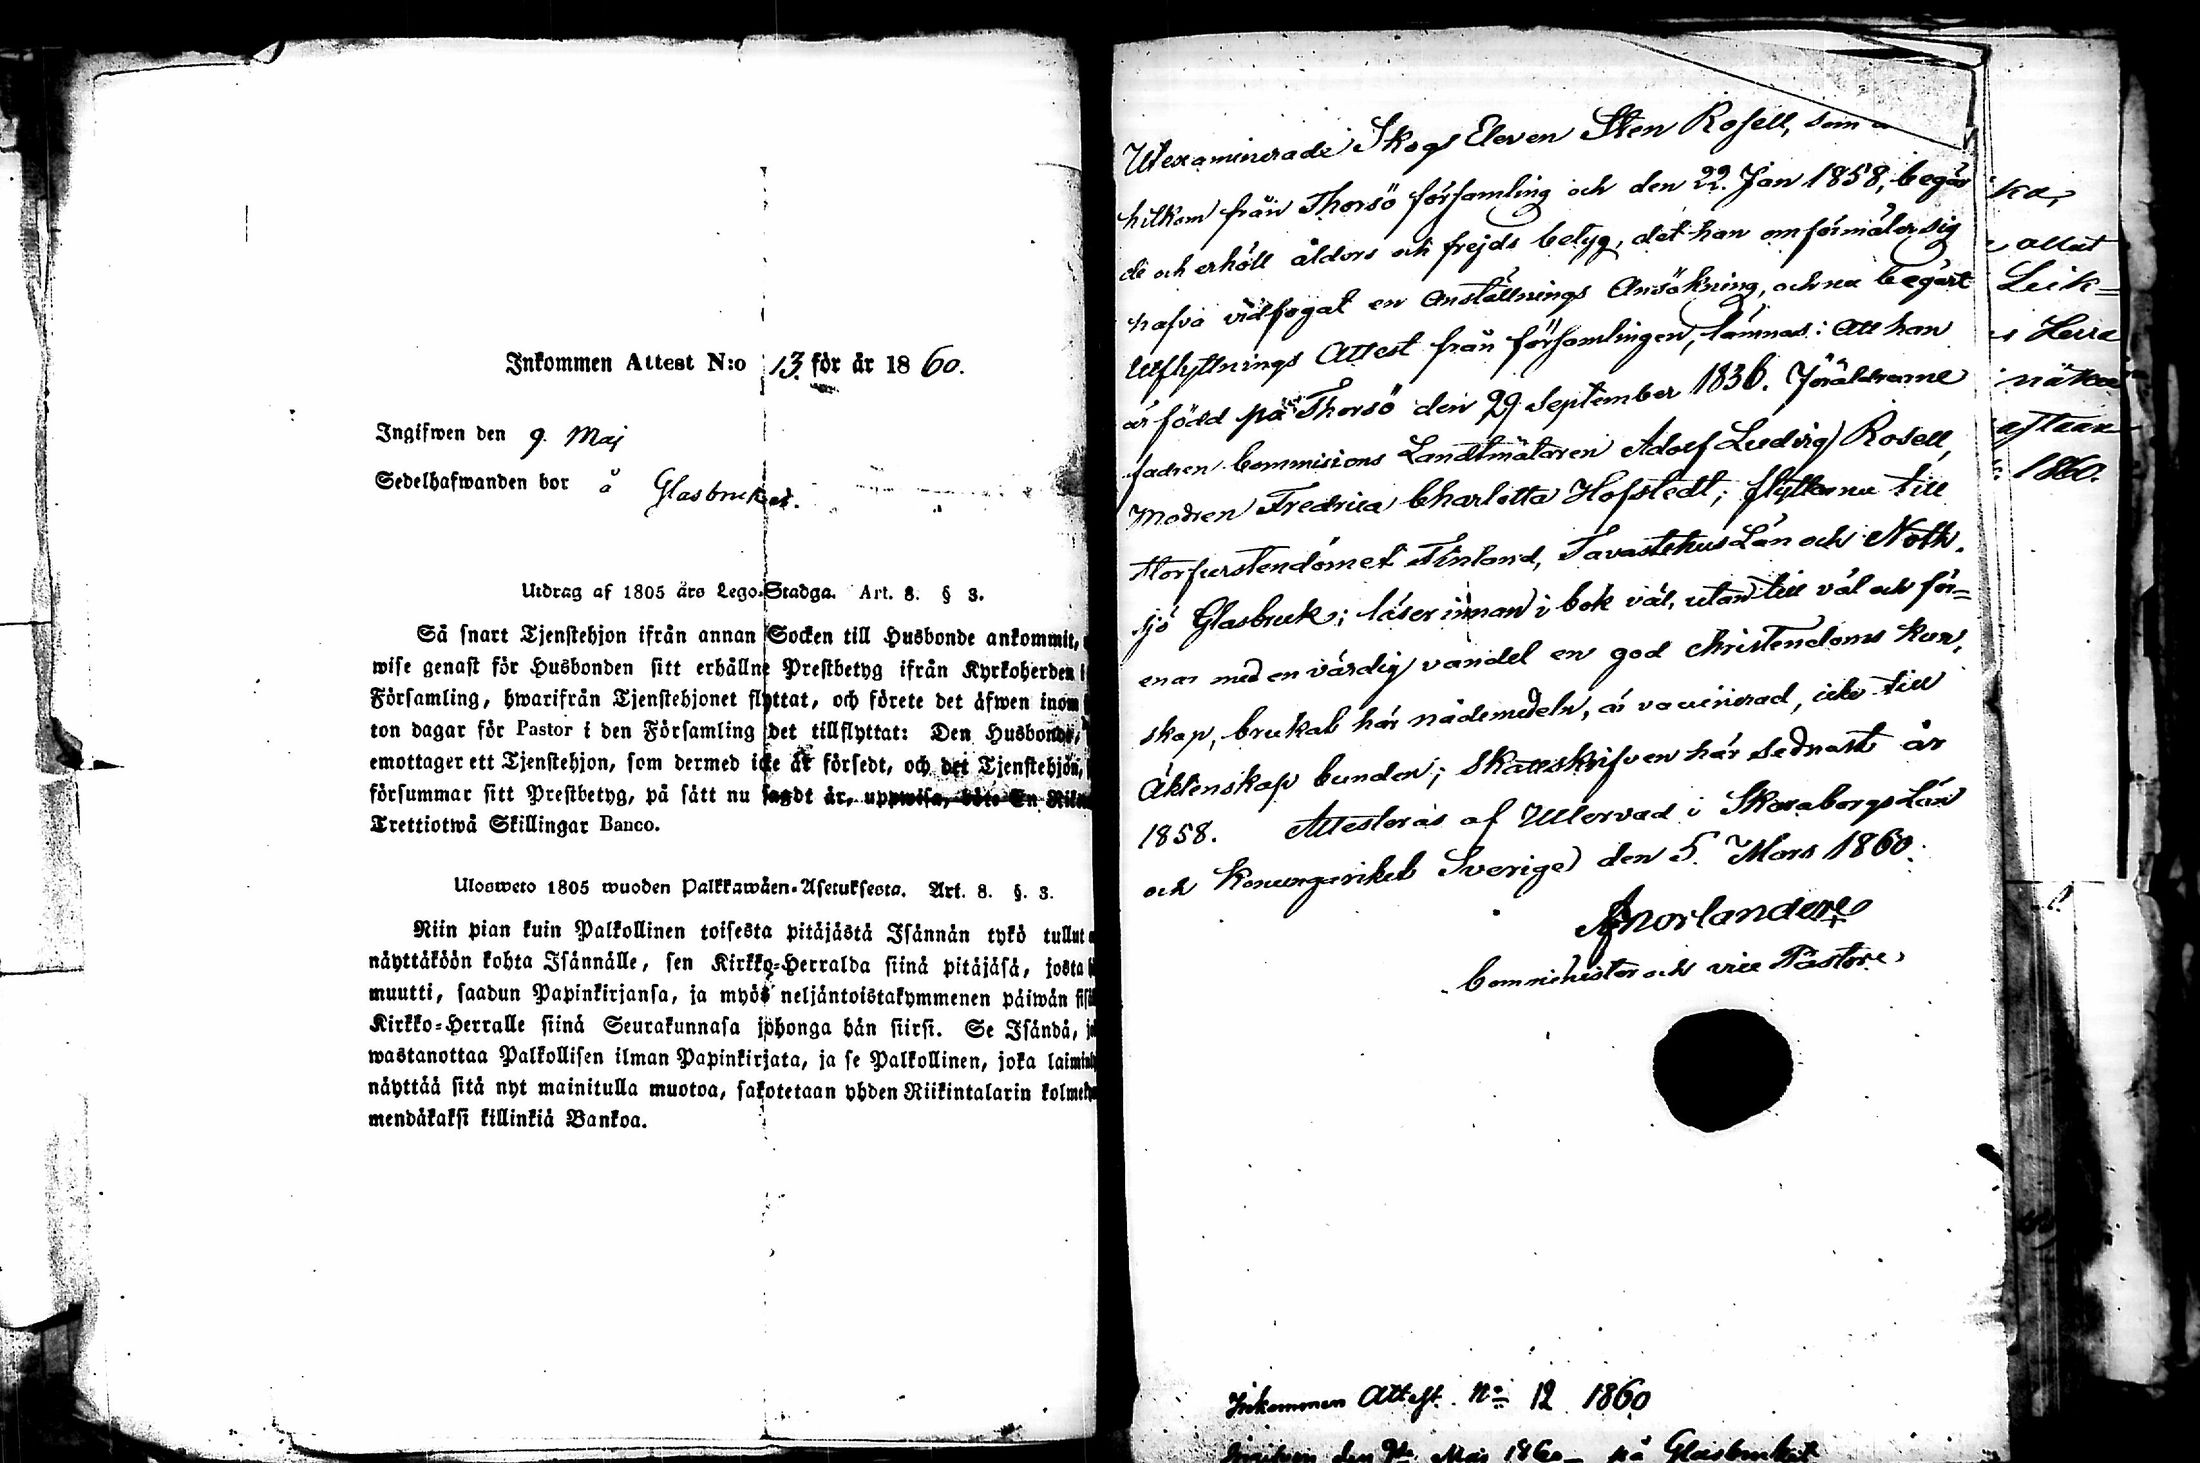 Inkommen Attest N:o 13. för år 1860.
Ingifwen den 9. Maj
Sedelhafwanden bor å Glasbruket.
Utdrag af 1805 års Lego-Stadga. Art. 8. § 3.
Så snart Tjenstehjon ifrån annan Socken till Husbonde ankommit,
wise genast för Husbonden sitt erhållne Prestbetyg ifrån Kyrkoherden i
Församling, hwarifrån Tjenstehjonet flyttat, och förete det äfwen inom
ton dagar för Pastor i den Församling det tillflyttat: Den Husbonde,
emottager ett Tjenstehjon, som dermed icke är försedt, och det Tjenstehjon,
försummar sitt Prestbetyg, på sätt nu sagdt är, uppwisa, böte En Riks
Trettiotwå Skillingar Banco.
Ulosweto 1805 wuoden Palkkawäen-Asetuksesta. Art. 8. §. 3.
Niin pian kuin Palkollinen toisesta pitäjästä Isännän tykö tullut
näyttäköön kohta Isännälle, sen Kirkko-Herralda siinä pitäjäsä, josta
muutti, saadun Papinkirjansa, ja myös neljäntoistakymmenen päiwän sis
Kirkko-Herralle siinä Seurakunnasa johonga hän siirsi. Se Isändä, jo
wastanottaa Palkollisen ilman Papinkirjata, ja se Palkollinen, joka laimin
näyttää sitä nyt mainitulla muotoa, sakotetaan yhden Riikintalarin kolmeky
mendäkaksi killinkiä Bankoa.
Utexaminerade Skogs Eleven Sten Rosell, som
hitkom från Thorsö församling och den 22. Jan 1858, begär
de och erhöll ålders och frejds betyg, det han omförmäler sig
hafva vidfogat en Anställnings Ansökning, och nu begärt
Utflyttnings Attest från församlingen, lämnas: Att han
är född på Thorsö den 29 September 1836. Föräldrarne
fadren Commisions Landtmätaren Adolf Ludvig Rosell,
Modren Fredrica Charlotta Hofstedt; flyttar nu till
Storfurstendömet Finland, Tavastehus Län och Notb.
sjö Glasbruk; läser innan i bok väl, utan till väl och för=
enar med en värdig vandel en god Christendoms kun,
skap, brukat här nådemedeln, är vaccinerad, icke till
Äktenskap bunden; Skattskrifven här sednast år
1858. Attesteras af Ullervad i Skaraborgs Län
och Konungariket Sverige den 5. Mars 1860.
Norlander
Comminister och vice Pastor
ka,
allat
Leik=
Herra
näkee
1860.
Inkommen Attest. No 12 1860
Ingifven den 9de Maj 1860 på Glasbruket